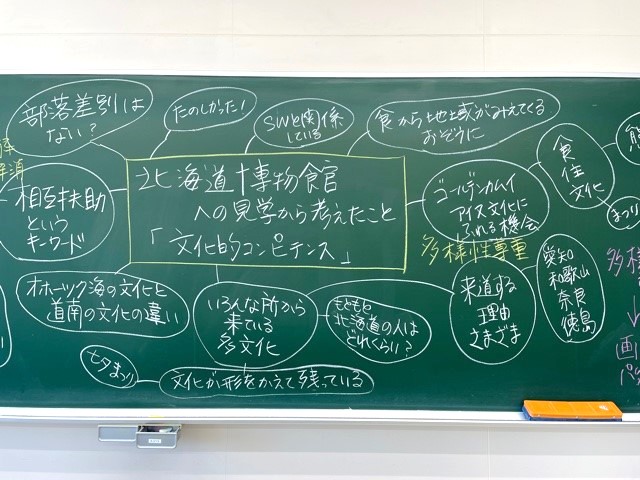 部落差別は
ない？
たのしかった！
SWと関係
している
食から地域がみえてくる
おぞうに
食
住
文化
熊
まつり
相互扶助
という
キーワード
北海道博物館
への見学から考えたこと
「文化的コンピテンス」
ゴールデンカムイ
アイヌ文化に
ふれる機会
多様性尊重
愛知
和歌山
奈良
徳島
多様
↓
画
オホーツク海の文化と
道南の文化の違い
いろんな所から
来ている
多文化
もともと
北海道の人は
どれくらい？
来道する
理由
さまざま
七夕まつり
文化が形をかえて残っている